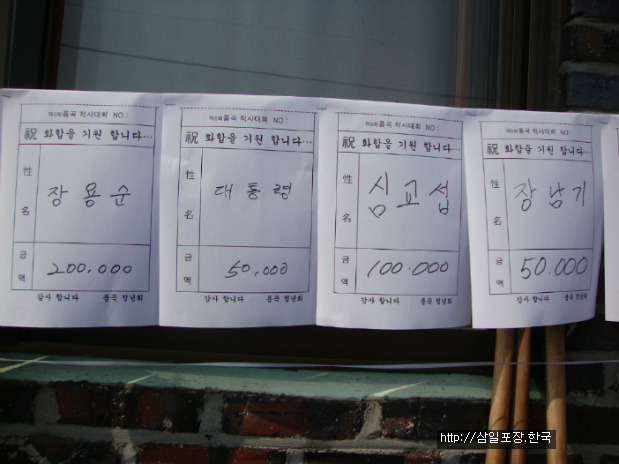 품곡 척사대회 NO :
祝 화합을 기원 합니다...
성명
장용순
금액
200,000
감사 합니다 품곡 청년회
품곡 척사대회 NO :
祝 화합을 기원 합니다...
성명
대통령
금액
50,000
감사 합니다 품곡 청년회
품곡 척사대회 NO :
祝 화합을 기원 합니다...
성명
심교섭
금액
100.000
감사 합니다 품곡 청년회
품곡 척사대회 NO :
祝 화합을 기원 합니다...
성명
장남기
금액
50.000
감사 합니다 품곡 청년회
http://삼일포장.한국